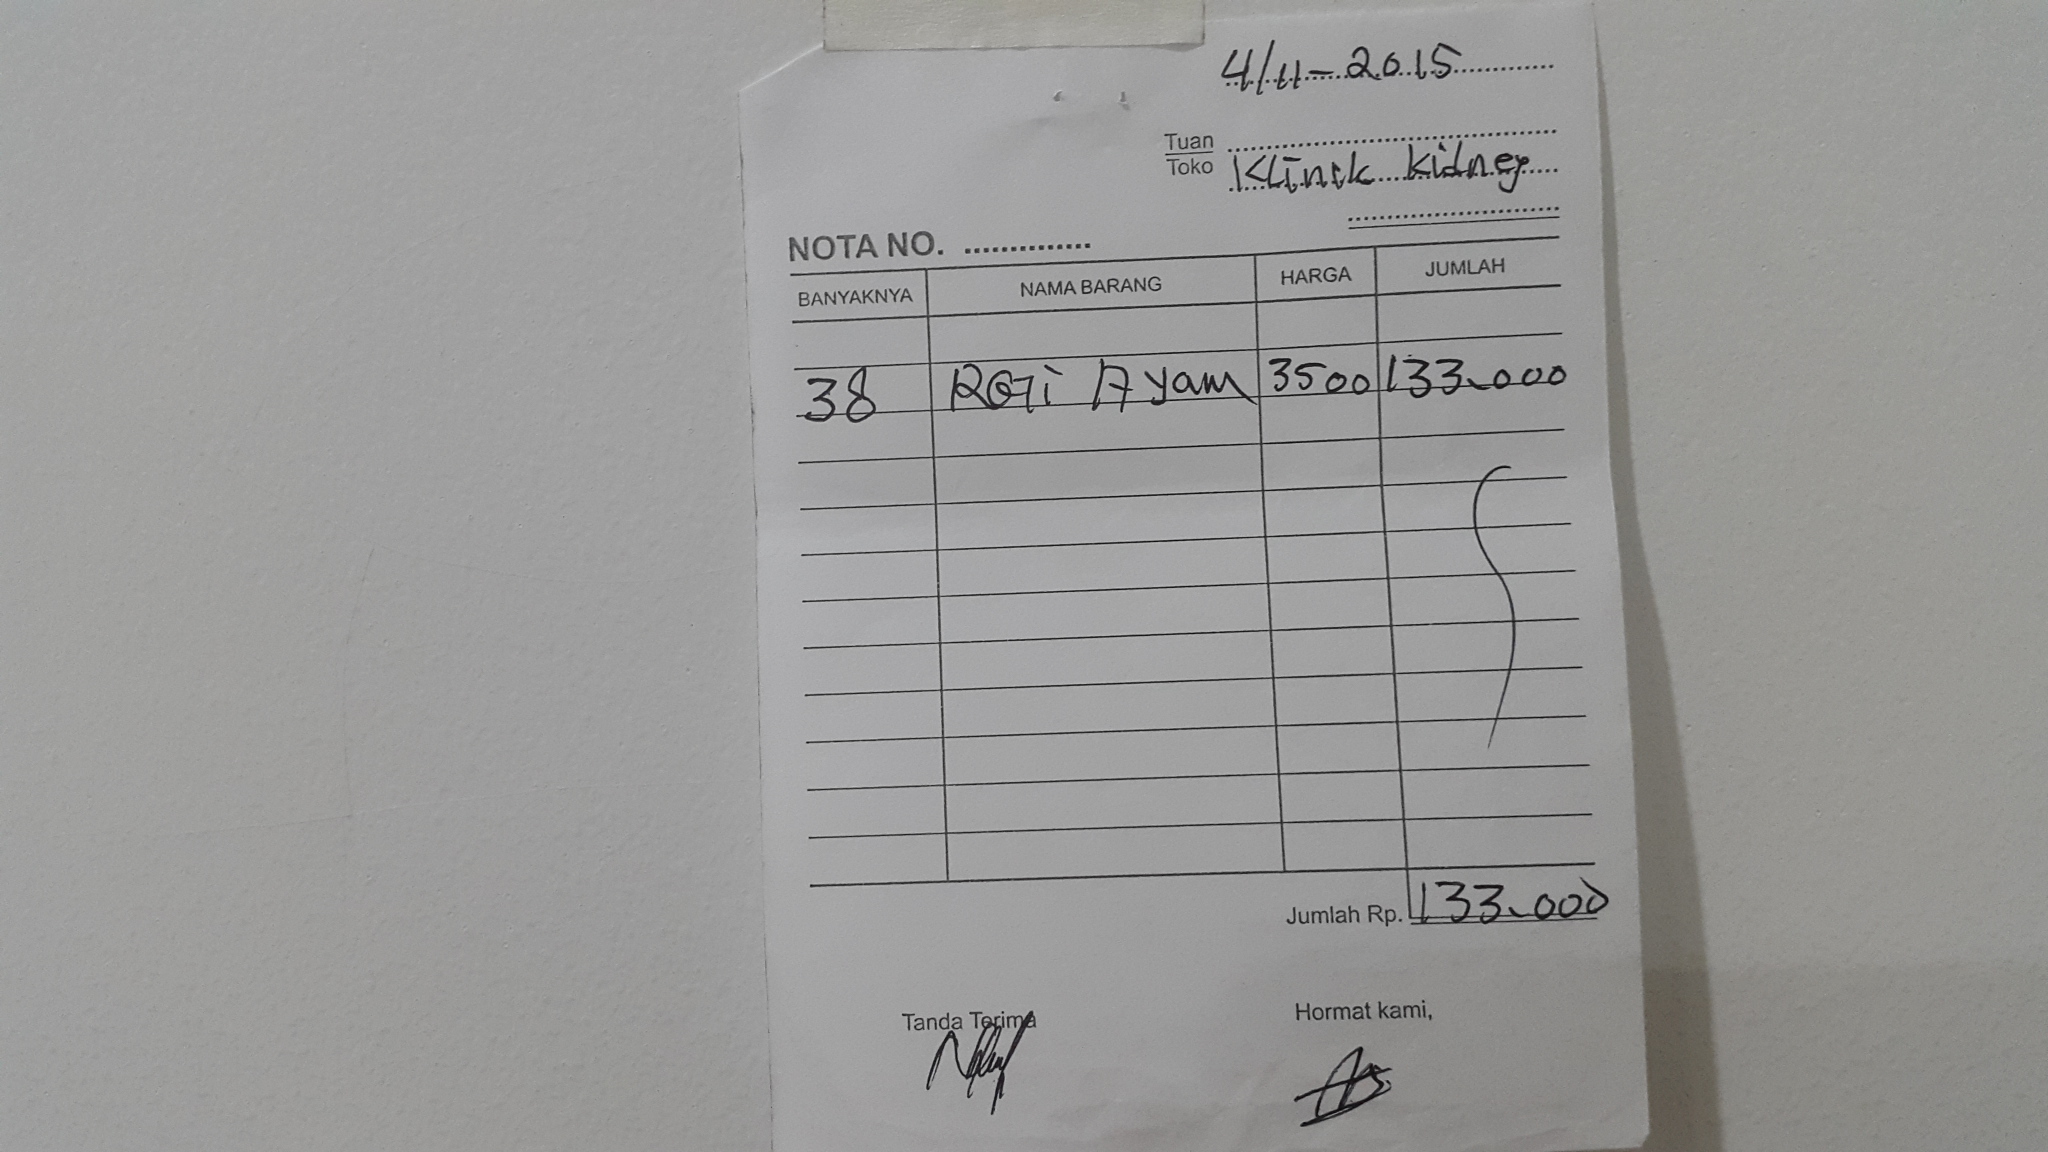 4/11-2015
Tuan
Toko Klinik Kidney
NOTA NO. ...............
BANYAKNYA NAMA BARANG HARGA JUMLAH
38 Roti Ayam 3500 133.000
Jumlah Rp. 133.000
Tanda Terima Hormat kami,